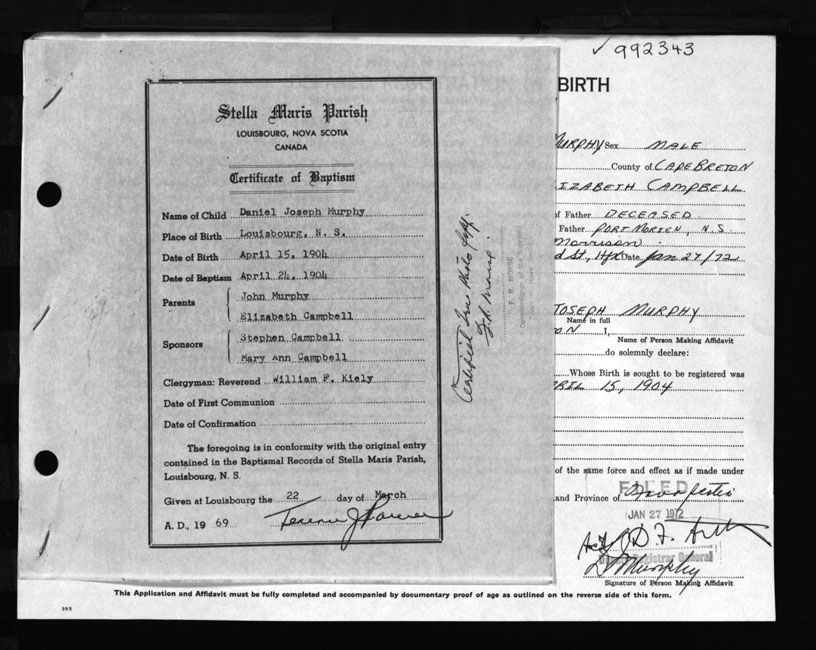 992343
BIRTH
Stella Maris Parish
LOUISBOURG, NOVA SCOTIA
CANADA
Certificate of Baptism
Name of Child Daniel Joseph Murphy
Place of Birth Louisbourg, N. S.
Date of Birth April 15, 1904
Date of Baptism April 24, 1904
Parents John Murphy
Elizabeth Campbell
Sponsors Stephen Campbell
Mary Ann Campbell
Clergyman: Reverend William F. Kiely
Date of First Communion
Date of Confirmation
The foregoing is in conformity with the original entry
contained in the Baptismal Records of Stella Maris Parish,
Louisbourg, N. S.
Given at Louisbourg the 22 day of March
A. D., 19 69
Certified True Photo Copy.
F. R. MOORE
MURPHY Sex MALE
County of CAPE BRETON
IZABETH CAMPBELL
of Father DECEASED
Father PORT MORIEN, N.S.
Morrison
d St., Hfx Date Jan 27/72
JOSEPH MURPHY
Name in full
ON I,
Name of Person Making Affidavit
do solemnly declare:
Whose Birth is sought to be registered was
RIL 15, 1904
of the same force and effect as if made under
and Province of Nova Scotia
FILED
JAN 27 1972
Registrar General
D Murphy
Signature of Person Making Affidavit
This Application and Affidavit must be fully completed and accompanied by documentary proof of age as outlined on the reverse side of this form.